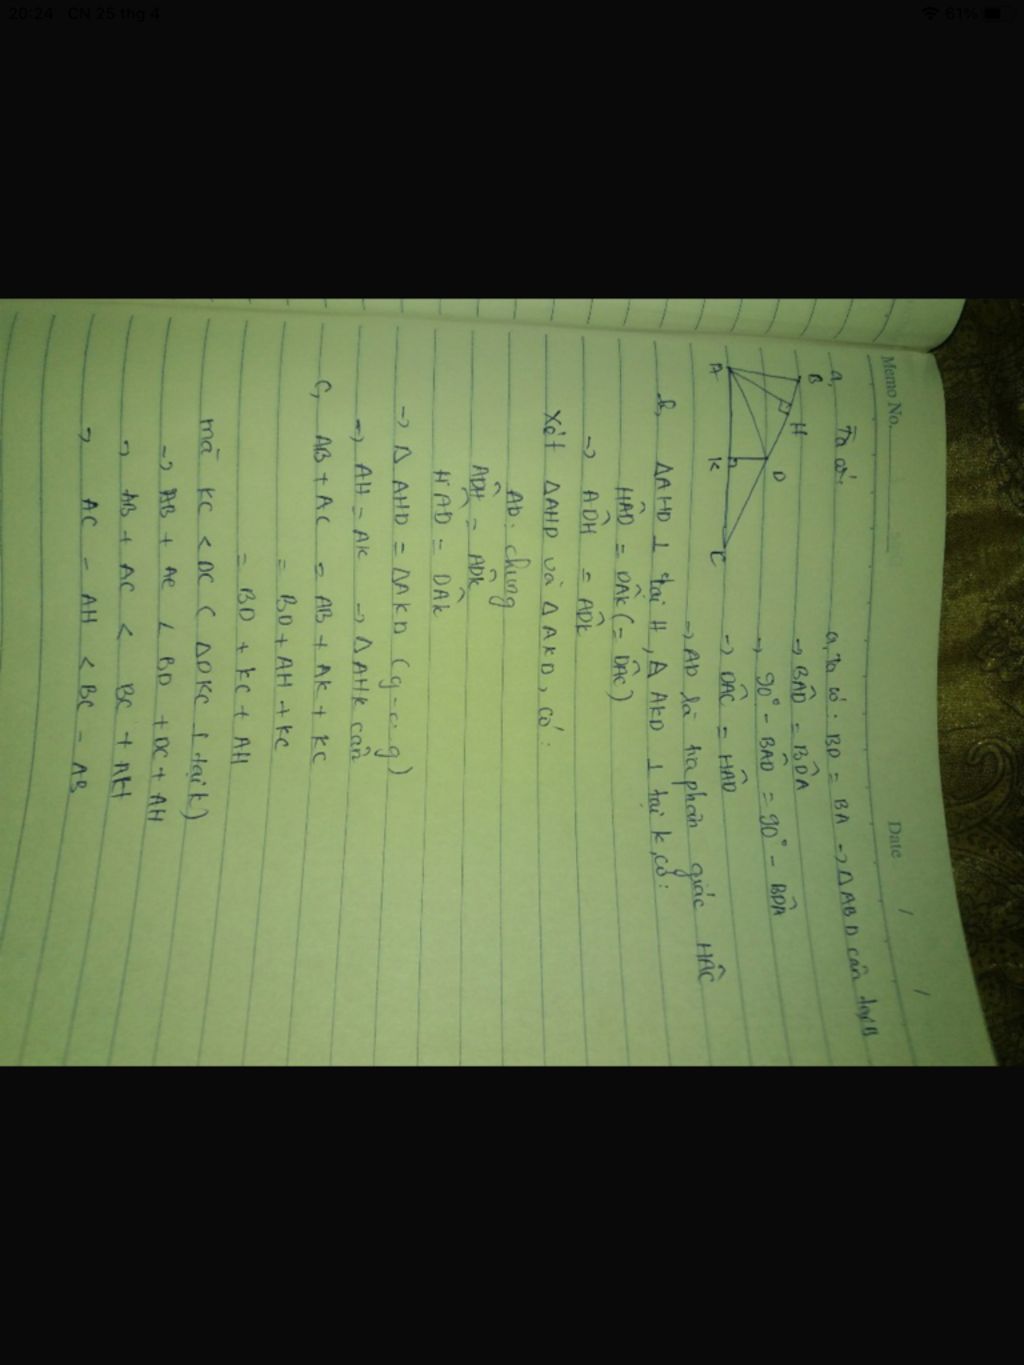 20:24 CN 25 thg 4
61%
Memo No.
Date / /
a, Ta có:
a, Ta có: BD = BA → ΔABD cân tại B
→ BÂD = BD̂A
→ 90° - BÂD = 90° - BD̂A
→ DÂC = HÂD
→ AD là tia phân giác HÂC
B
H
D
A
K
C
b, ΔAHD ⊥ tại H, Δ AKD ⊥ tại K, có:
HÂD = DÂK (= DÂC)
→ AD̂H = AD̂K
Xét ΔAHD và Δ AKD, có:
AD: chung
AD̂H = AD̂K
HÂD = DÂK
→ Δ AHD = ΔAKD (g-c-g)
→ AH = AK → ΔAHK cân
C, AB + AC = AB + AK + KC
= BD + AH + KC
= BD + KC + AH
mà KC < DC ( ΔDKC ⊥ tại K)
→ AB + AC < BD + DC + AH
→ AB + AC < BC + AH
→ AC - AH < BC - AB